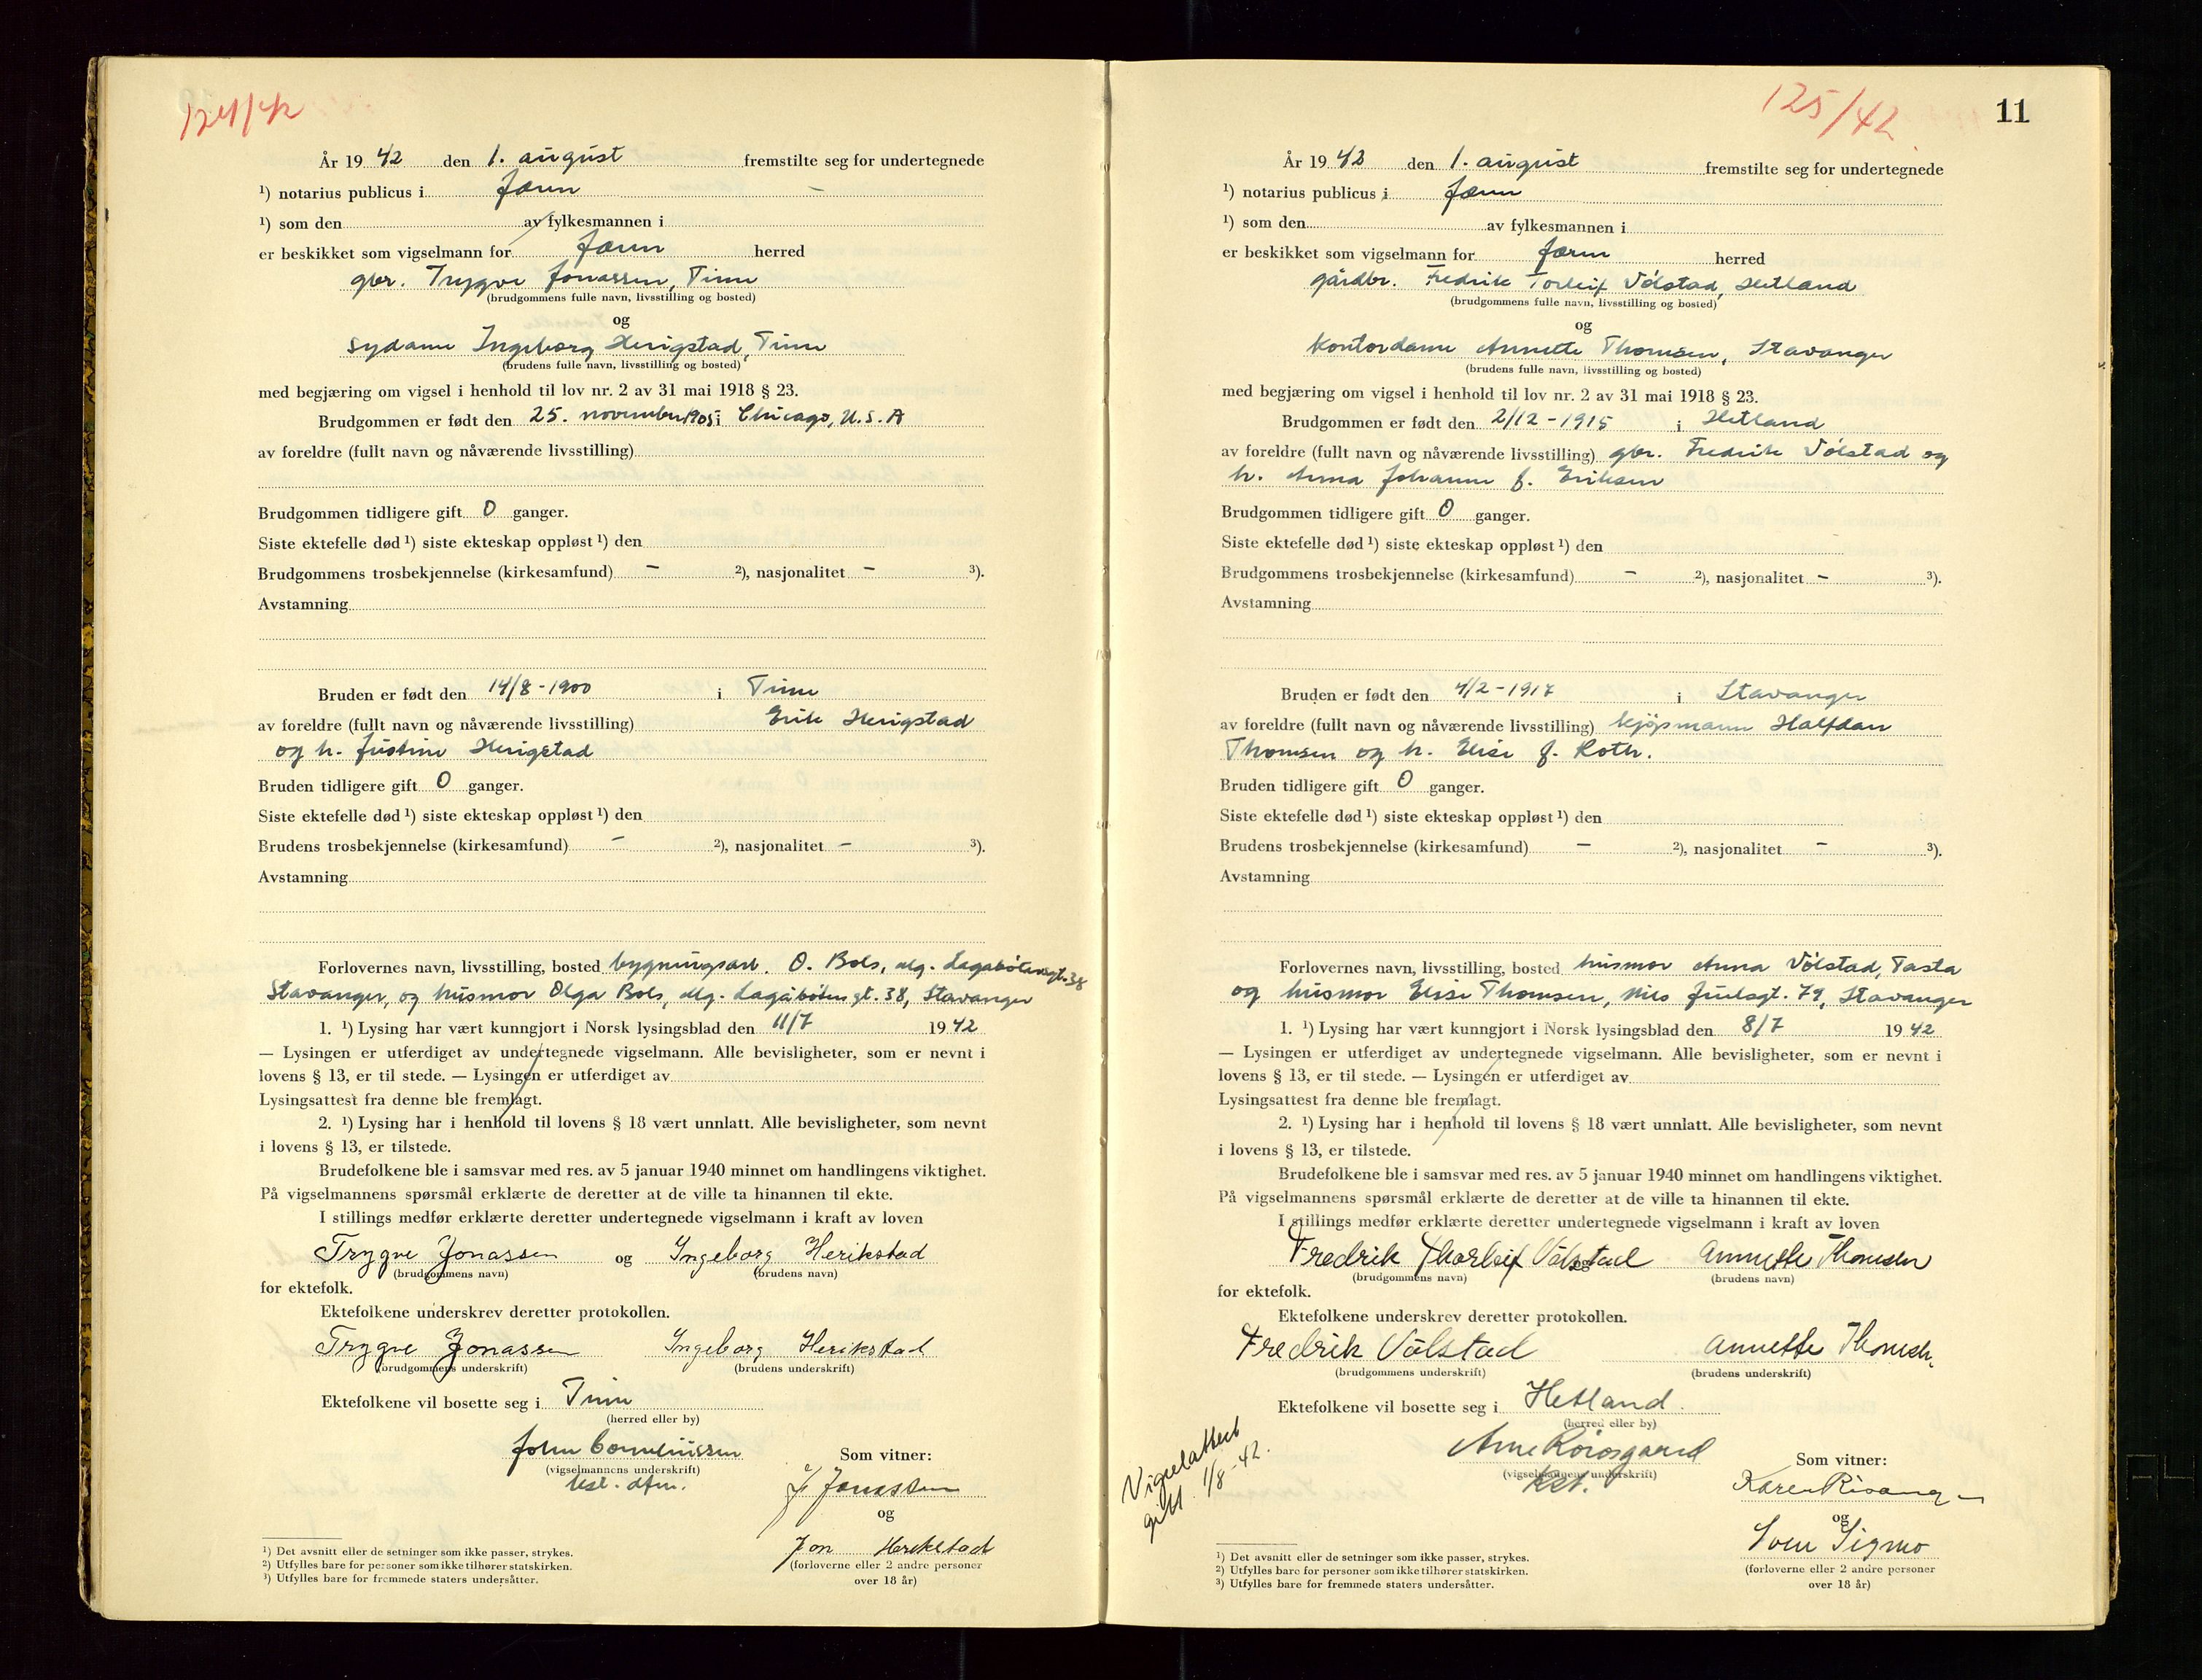 124/42
År 19 42 den 1. august fremstilte seg for undertegnede
¹) notarius publicus i Jæren
¹) som den av fylkesmannen i
er beskikket som vigselmann for Jæren herred
gbr. Trygve Jonassen, Time
(brudgommens fulle navn, livsstilling og bosted)
og
sydame Ingeborg Herigstad, Time
(brudens fulle navn, livsstilling og bosted)
med begjæring om vigsel i henhold til lov nr. 2 av 31 mai 1918 § 23.
Brudgommen er født den 25. november 1905 i Chicago, U.S.A
av foreldre (fullt navn og nåværende livsstilling)
Brudgommen tidligere gift 0 ganger.
Siste ektefelle død ¹) siste ekteskap oppløst ¹) den
Brudgommens trosbekjennelse (kirkesamfund) – ²), nasjonalitet – ³).
Avstamning
Bruden er født den 14/8-1900 i Time
av foreldre (fullt navn og nåværende livsstilling) Erik Herigstad
og h. Justine Herigstad
Bruden tidligere gift 0 ganger.
Siste ektefelle død ¹) siste ekteskap oppløst ¹) den
Brudens trosbekjennelse (kirkesamfund) – ²), nasjonalitet – ³).
Avstamning
Forlovernes navn, livsstilling, bosted bygningsarb. O. Bols, Mg. Lagabøtersgt. 38
Stavanger, og husmor Olga Bols, Mg. Lagabøters gt. 38, Stavanger
1. ¹) Lysing har vært kunngjort i Norsk lysingsblad den 11/7 19 42
— Lysingen er utferdiget av undertegnede vigselmann. Alle bevisligheter, som er nevnt i
lovens § 13, er til stede. — Lysingen er utferdiget av
Lysingsattest fra denne ble fremlagt.
2. ¹) Lysing har i henhold til lovens § 18 vært unnlatt. Alle bevisligheter, som nevnt
i lovens § 13, er tilstede.
Brudefolkene ble i samsvar med res. av 5 januar 1940 minnet om handlingens viktighet.
På vigselmannens spørsmål erklærte de deretter at de ville ta hinannen til ekte.
I stillings medfør erklærte deretter undertegnede vigselmann i kraft av loven
Trygve Jonassen og Ingeborg Herikstad
(brudgommens navn) (brudens navn)
for ektefolk.
Ektefolkene underskrev deretter protokollen.
Trygve Jonassen Ingeborg Herikstad
(brudgommens underskrift) (brudens underskrift)
Ektefolkene vil bosette seg i Time
(herred eller by)
John Corneliussen Som vitner:
(vigselmannens underskrift)
J Jonassen
og
Jon Herikstad
(forloverne eller 2 andre personer
over 18 år)
¹) Det avsnitt eller de setninger som ikke passer, strykes.
²) Utfylles bare for personer som ikke tilhører statskirken.
³) Utfylles bare for fremmede staters undersåtter.
125/42
11
År 19 42 den 1. august fremstilte seg for undertegnede
¹) notarius publicus i Jæren
¹) som den av fylkesmannen i
er beskikket som vigselmann for Jæren herred
gårdbr. Fredrik Torleif Vølstad, Hetland
(brudgommens fulle navn, livsstilling og bosted)
og
Kontordame Annette Thomsen, Stavanger
(brudens fulle navn, livsstilling og bosted)
med begjæring om vigsel i henhold til lov nr. 2 av 31 mai 1918 § 23.
Brudgommen er født den 2/12-1915 i Hetland
av foreldre (fullt navn og nåværende livsstilling) gbr. Fredrik Vølstad og
h. Anna Johanne f. Eriksen
Brudgommen tidligere gift 0 ganger.
Siste ektefelle død ¹) siste ekteskap oppløst ¹) den
Brudgommens trosbekjennelse (kirkesamfund) – ²), nasjonalitet – ³).
Avstamning
Bruden er født den 4/2-1917 i Stavanger
av foreldre (fullt navn og nåværende livsstilling) kjøpmann Halfdan
Thomsen og h. Elise f. Roth.
Bruden tidligere gift 0 ganger.
Siste ektefelle død ¹) siste ekteskap oppløst ¹) den
Brudens trosbekjennelse (kirkesamfund) – ²), nasjonalitet – ³).
Avstamning
Forlovernes navn, livsstilling, bosted husmor Anna Vølstad, Tasta
og husmor Elise Thomsen, Nils Juelsgt. 79, Stavanger
1. ¹) Lysing har vært kunngjort i Norsk lysingsblad den 8/7 19 42
— Lysingen er utferdiget av undertegnede vigselmann. Alle bevisligheter, som er nevnt i
lovens § 13, er til stede. — Lysingen er utferdiget av
Lysingsattest fra denne ble fremlagt.
2. ¹) Lysing har i henhold til lovens § 18 vært unnlatt. Alle bevisligheter, som nevnt
i lovens § 13, er tilstede.
Brudefolkene ble i samsvar med res. av 5 januar 1940 minnet om handlingens viktighet.
På vigselmannens spørsmål erklærte de deretter at de ville ta hinannen til ekte.
I stillings medfør erklærte deretter undertegnede vigselmann i kraft av loven
Fredrik Thorleif Vølstad og Annette Thomsen
(brudgommens navn) (brudens navn)
for ektefolk.
Ektefolkene underskrev deretter protokollen.
Fredrik Vølstad Annette Thomsen
(brudgommens underskrift) (brudens underskrift)
Ektefolkene vil bosette seg i Hetland.
(herred eller by)
Vigselattest
gitt 1/8-42.
Arne Som vitner:
(vigselmannens underskrift)
Karen
og
Sven Sigmo
(forloverne eller 2 andre personer
over 18 år)
¹) Det avsnitt eller de setninger som ikke passer, strykes.
²) Utfylles bare for personer som ikke tilhører statskirken.
³) Utfylles bare for fremmede staters undersåtter.